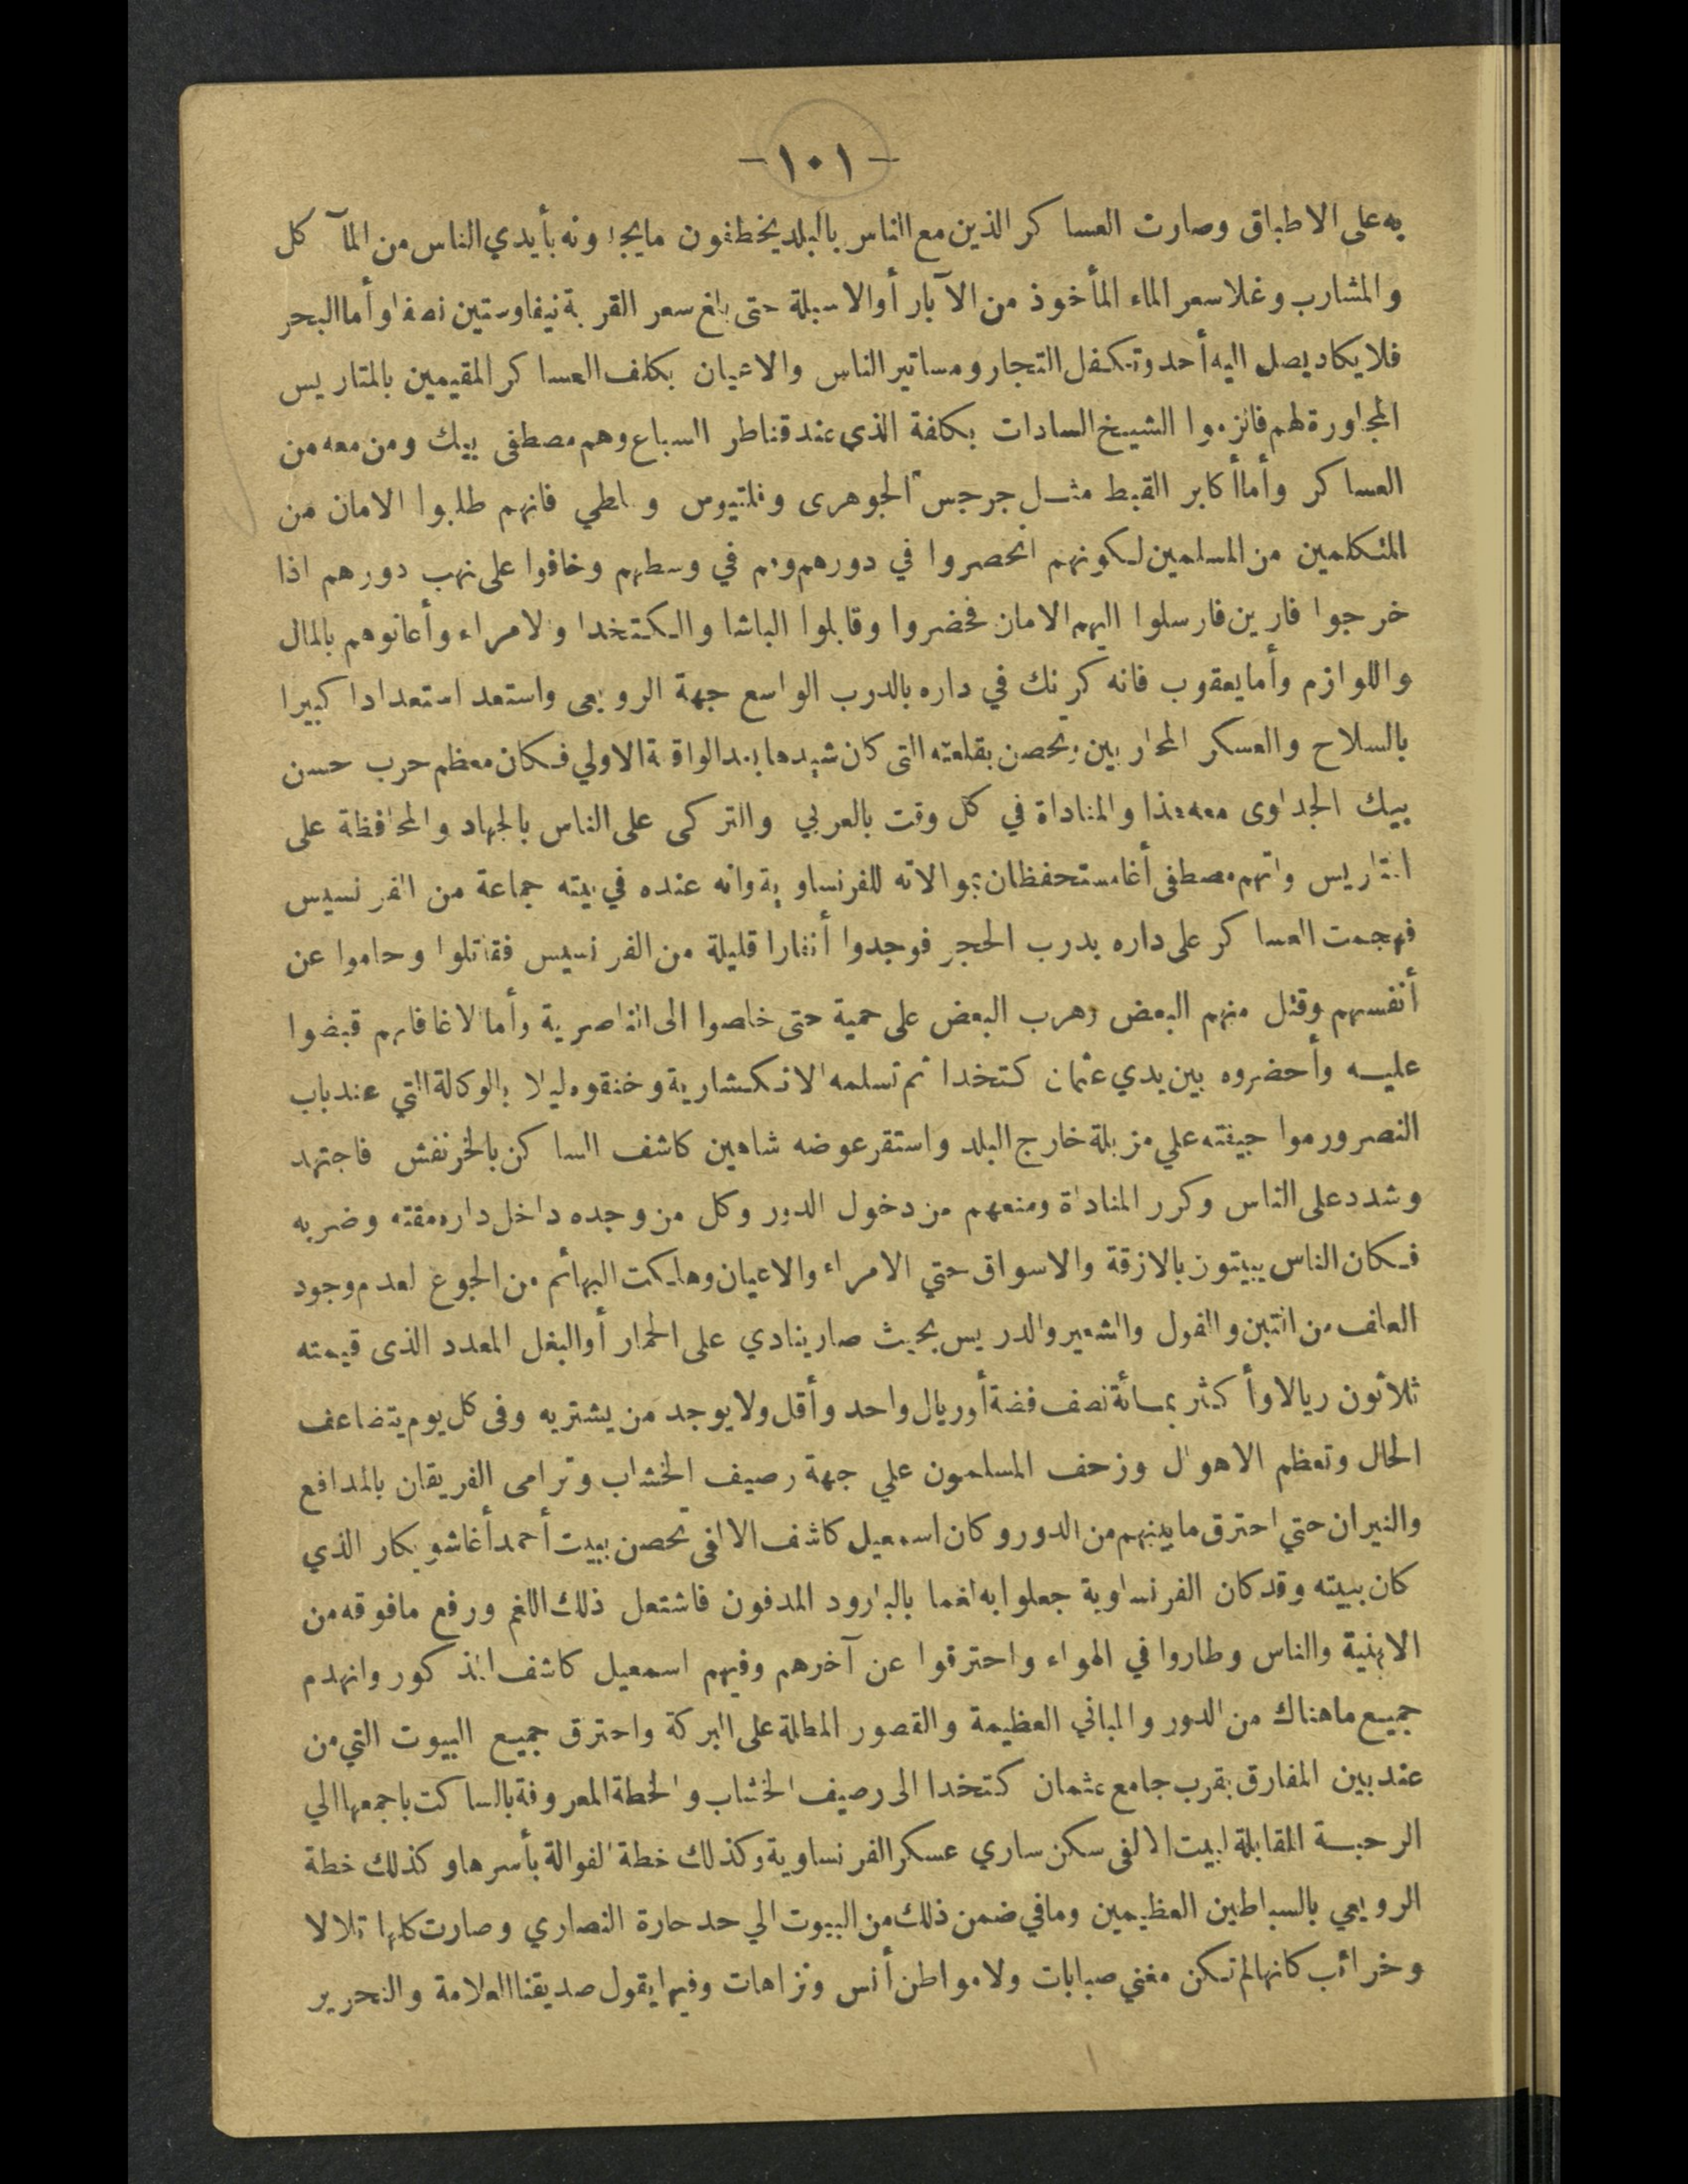 -١٠١-
به على الاطباق وصارت العسا كر الذين مع الناس بالبلد يخطفون مايجدونه بأيدي الناس من المآ كل
والمشارب وغلا سعر الماء المأخوذ من الآبار أوالاسبلة حتى بلغ سعر القربة نيفا وستين نصفا وأما البحر
فلا يكاد يصل اليه أحد وتكفل التجار ومساتير الناس والاعيان بكلف العسا كر المقيمين بالمتاريس
المجاورة لهم فالزموا الشيخ السادات بكلفة الذي عند قناطر السباع وهم مصطفى بيك ومن معه من
العسا كر وأما أكابر القبط مثل جرجس الجوهرى وفلتيوس وملطي فانهم طلبوا الامان من
المتكلمين من المسلمين لكونهم انحصروا في دورهم وهم في وسطهم وخافوا على نهب دورهم اذا
خرجوا فارين فارسلوا اليهم الامان فحضروا وقابلوا الباشا والكتخدا والامراء وأعانوهم بالمال
واللوازم وأما يعقوب فانه كرنك في داره بالدرب الواسع جهة الرويعى واستعد استعدادا كبيرا
بالسلاح والعسكر المحاربين وتحصن بقلعته التى كان شيدها بعد الواقعة الاولي فكان معظم حرب حسن
بيك الجداوى معه هذا والمناداة في كل وقت بالعربي والتركى على الناس بالجهاد والمحافظة على
المتاريس واتهم مصطفى أغا مستحفظان بموالاته للفرنساوية وانه عنده في بيته جماعة من الفرنسيس
فهجمت العسا كر على داره بدرب الحجر فوجدوا أنفارا قليلة من الفرنسيس فقاتلوا وحاموا عن
أنفسهم وقتل منهم البعض وهرب البعض على حمية حتى خلصوا الى الناصرية وأما الاغا فانهم قبضوا
عليه وأحضروه بين يدي عثمان كتخدا ثم تسلمه الانكشارية وخنقوه ليلا بالوكالة التي عند باب
النصر ورموا جيفته علي مزبلة خارج البلد واستقر عوضه شاهين كاشف الساكن بالخرنفش فاجتهد
وشدد على الناس وكرر المناداة ومنعهم من دخول الدور وكل من وجده داخل داره مقته وضربه
فكان الناس يبيتون بالازقة والاسواق حتي الامراء والاعيان وهلكت البهائم من الجوع لعدم وجود
العلف من التبن والفول والشعير والدريس بحيث صار ينادي على الحمار أو البغل المعدد الذى قيمته
ثلاثون ريالا وأ كثر بمائة نصف فضة أو ريال واحد وأقل ولا يوجد من يشتريه وفى كل يوم يتضاعف
الحال وتعظم الاهوال وزحف المسلمون علي جهة رصيف الخشاب وترامى الفريقان بالمدافع
والنيران حتي احترق ما بينهم من الدور وكان اسمعيل كاشف الالفى تحصن ببيت أحمد أغا شويكار الذي
كان ببيته وقد كان الفرنساوية جعلوا به لغما بالبارود المدفون فاشتعل ذلك اللغم ورفع ما فوقه من
الابنية والناس وطاروا في الهواء واحترقوا عن آخرهم وفيهم اسمعيل كاشف المذ كور وانهدم
جميع ما هناك من الدور والمباني العظيمة والقصور المطلة على البركة واحترق جميع البيوت التي من
عند بين المفارق بقرب جامع عثمان كتخدا الى رصيف الخشاب والخطة المعروفة بالساكت باجمعها الي
الرحبة المقابلة لبيت الالفى سكن ساري عسكر الفرنساوية وكذلك خطة الفوالة بأسرها وكذلك خطة
الرويعي بالسباطين العظيمين ومافي ضمن ذلك من البيوت الي حد حارة النصاري وصارت كلها تلالا
وخرائب كانها لم تكن مغني صبابات ولا مواطن أنس ونزاهات وفيها يقول صديقنا العلامة والنحرير